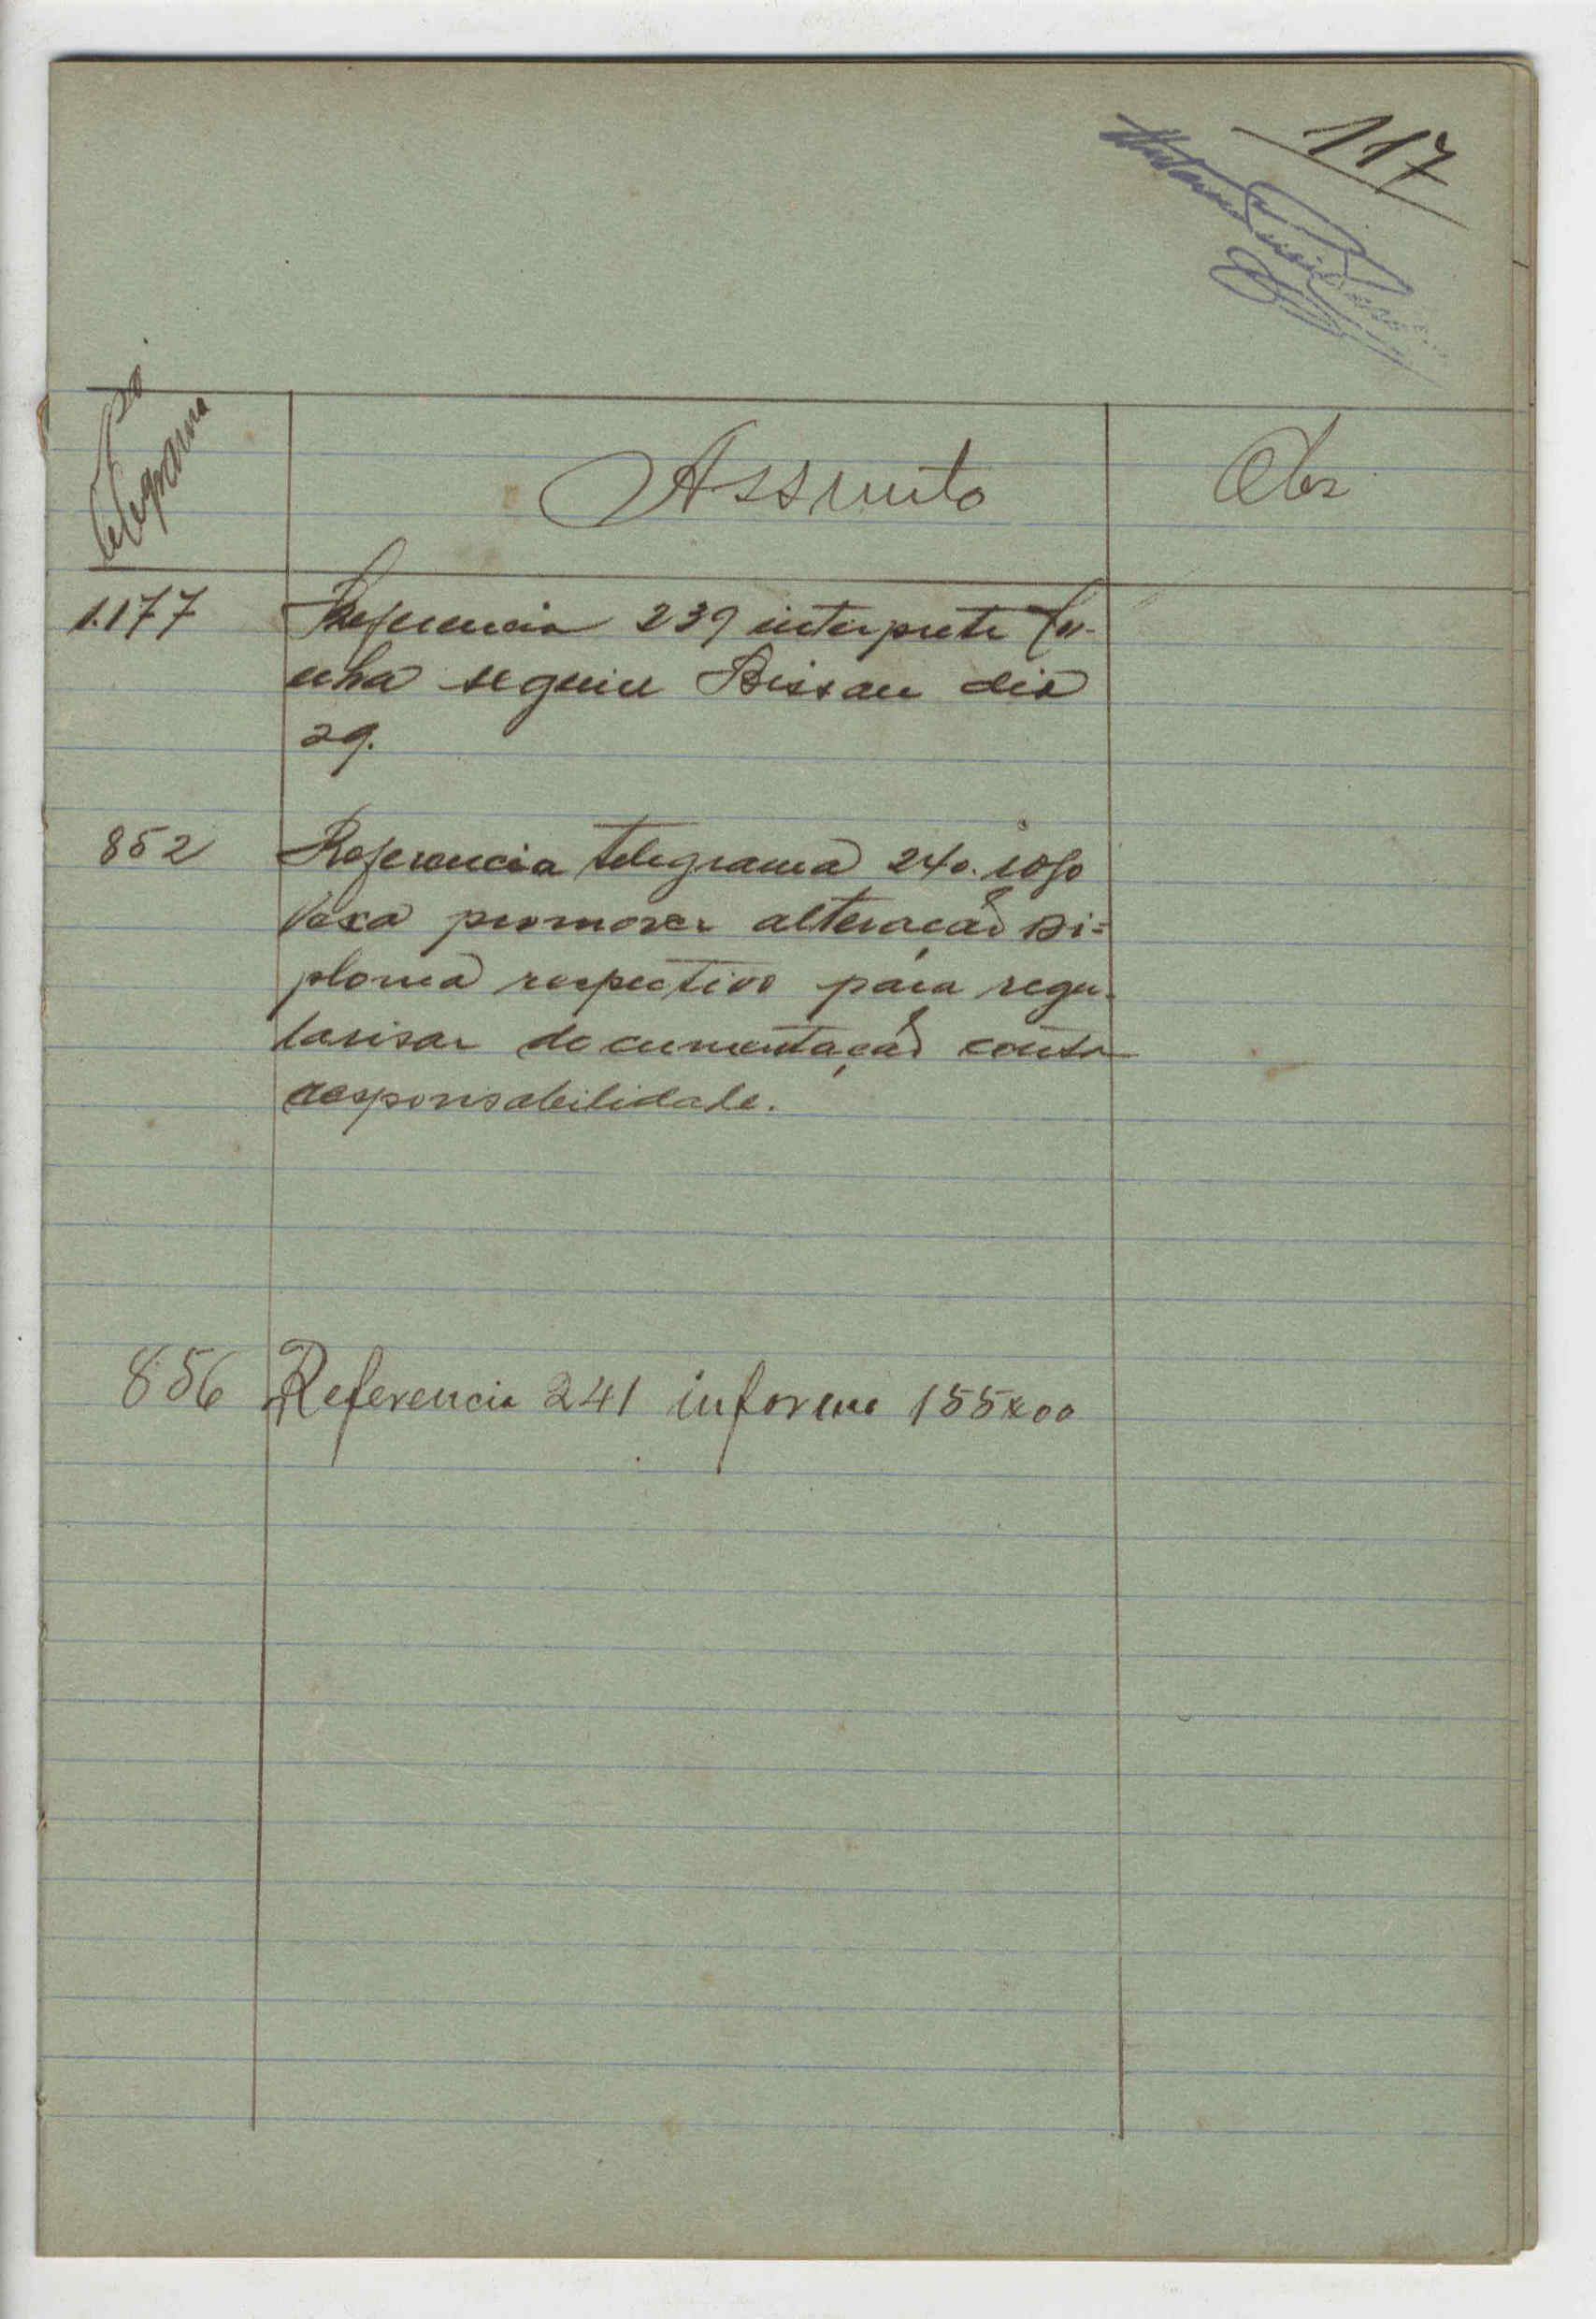 117
telegrama
Assunto
Obs
1.177 Referencia 239 interprete Cu-
nha seguiu Bissau dia
29.
852 Referencia telegrama 240. rogo
Vexa promover alteração Di=
ploma respectivo para regu-
larisar documentação conta
responsabilidade.
856 Referencia 241 informo 155x00